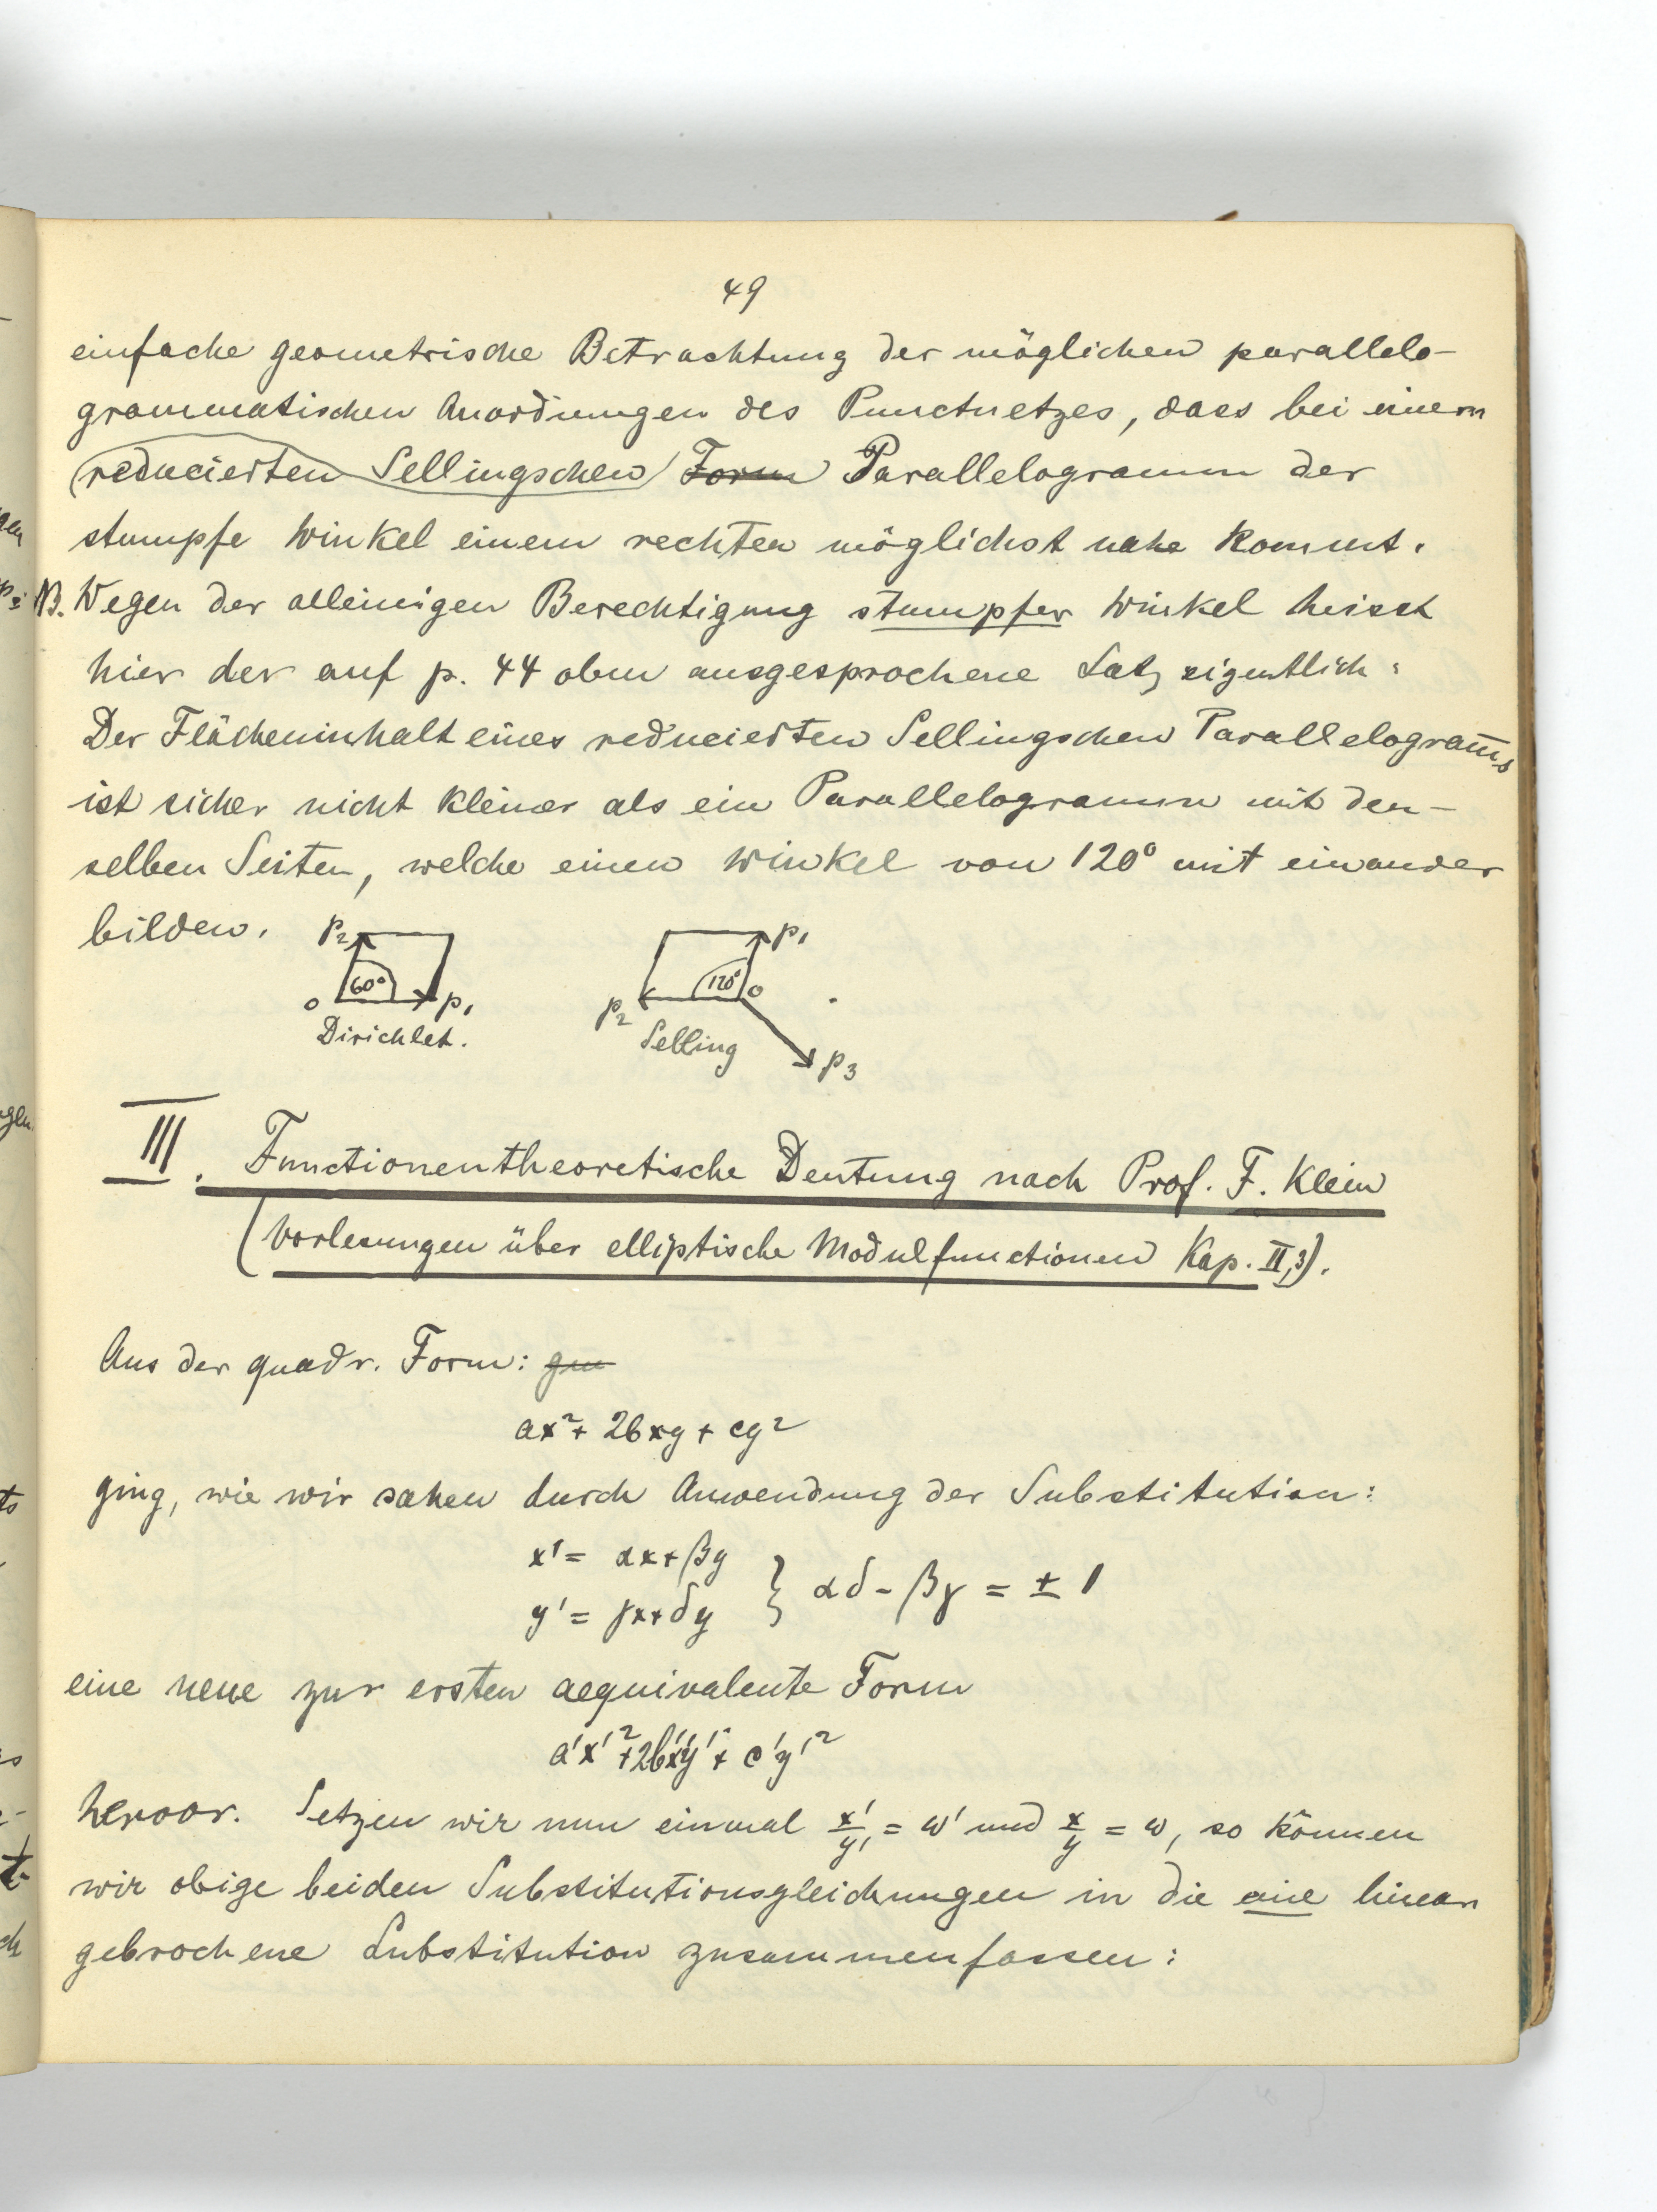 49
einfache geometrische Betrachtung der möglichen parallelo-
grammatischen Anordnungen des Punctnetzes, dass bei einem
reducierten Sellingschen Form Parallelogramm der
stumpfe Winkel einem rechten möglichst nahe kommt.
NB. Wegen der alleinigen Berechtigung stumpfer Winkel heisst
hier der auf p. 44 oben ausgesprochene Satz eigentlich:
Der Flächeninhalt eines reducierten Sellingschen Parallelogram̅s
ist sicher nicht kleiner als ein Parallelogramm mit den-
selben Seiten, welche einen Winkel von 120° mit einander
bilden.
p₂ 60° o p₁
Dirichlet.
p₁ 120° o p₂ p₃
Selling
III. Functionentheoretische Deutung nach Prof. F. Klein
(Vorlesungen über elliptische Modulfunctionen Kap. II,3).
Aus der quadr. Form:
ax² + 2bxy + cy²
ging, wie wir sahen durch Anwendung der Substitution:
x' = αx + βy
y' = γx + δy } αδ - βγ = ± 1
eine neue zur ersten aequivalente Form
a'x'² + 2b'x'y' + c'y'²
hervor. Setzen wir nun einmal x'/y' = ω' und x/y = ω, so können
wir obige beiden Substitutionsgleichungen in die eine linear
gebrochene Substitution zusammenfassen: